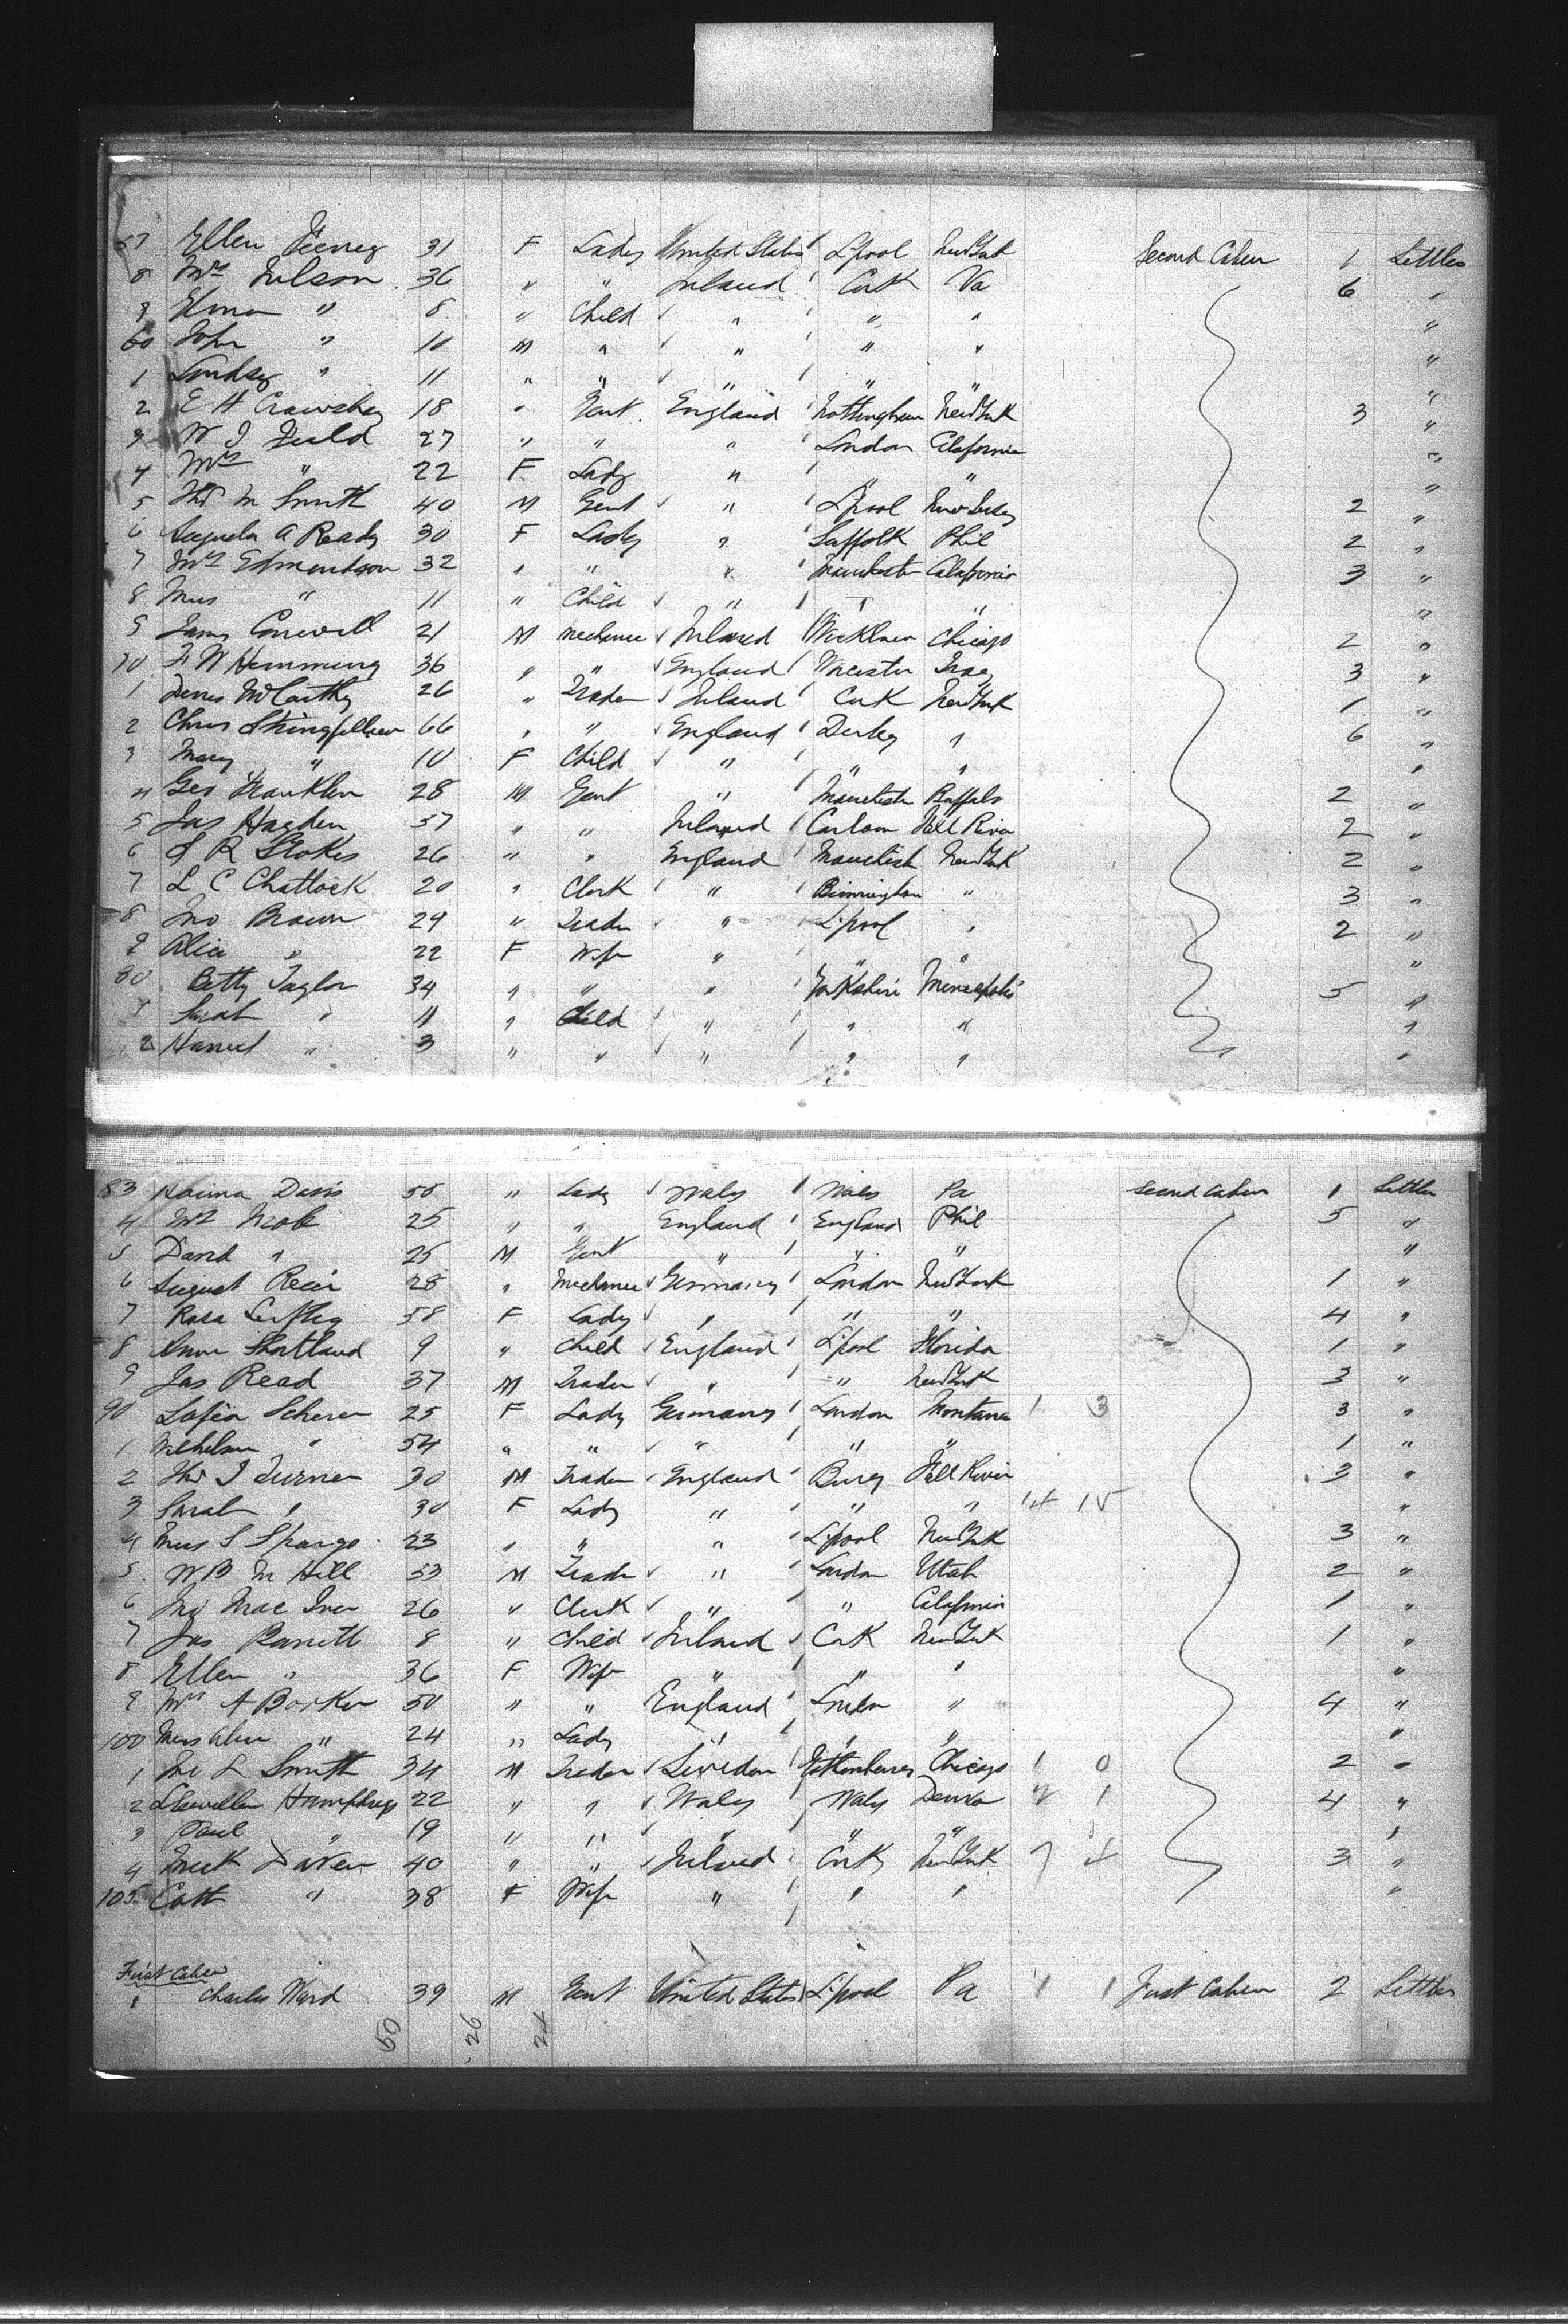 57 Ellen Feeney 31 F Lady United States L'pool New York Second Cabin 1 Settler
8 Mrs Nelson 36 " " Ireland Cork Va 6 "
9 Elma " 8 " Child " " " "
60 John " 10 M " " " " "
1 Lindsey " 11 " " " " " "
2 E H Crawshay 18 " Gent England Nottingham New York 3 "
3 W J Field 27 " " " London Calafornia "
4 Mrs " 22 F Lady " " " "
5 Thos M Smith 40 M Gent " L'pool New Jersey 2 "
6 Augusta A Ready 30 F Lady " Suffolk Phil 2 "
7 Mrs Edmondson 32 " " " Manchester Calafornia 3 "
8 Miss " 11 " Child " " " "
9 James Conwell 21 M Mechanic Ireland Wicklow Chicago 2 "
70 F W Hemming 36 " " England Worcester Troy 3 "
1 Denis McCarthy 26 " Trader Ireland Cork New York 1 "
2 Chris Stringfellow 66 " " England Derby " 6 "
3 Mary " 10 F Child " " " "
4 Geo Franklin 28 M Gent " Manchester Buffalo 2 "
5 Jas Hayden 37 " " Ireland Carlow Fall River 2 "
6 S R Stokes 26 " " England Manchester New York 2 "
7 L C Chattock 20 " Clerk " Birmingham " 3 "
8 Jno Brown 29 " Trader " L'pool " 2 "
9 Alice " 22 F Wife " " " "
80 Betty Taylor 34 " " " Yorkshire Mineapolis 5 "
1 Sarah " 11 " Child " " " "
2 Harriet " 3 " " " " " "
83 Davis 50 " Lady Wales Wales Pa Second Cabin 1 Settler
4 Mrs 25 " " England England Phil 5 "
5 David " 25 M Gent " " " "
6 August 28 " Mechanic Germany London New York 1 "
7 Rosa 58 F Lady " " " 4 "
8 Annie Shortland 9 " Child England L'pool Florida 1 "
9 Jas Read 37 M Trader " " New York 3 "
90 Sofia Scherer 25 F Lady Germany London Montana 1 3 3 "
1 Wilhelm " 54 " " " " " 1 "
2 Thos J Turner 30 M Trader England Bury Fall River 3 "
3 Sarah " 30 F Lady " " " 14 15 "
4 Miss S Spargo 23 " " " L'pool New York 3 "
5 W B M Hill 53 M Trader " London Utah 2 "
6 Jno Mac Iver 26 " Clerk " " Calafornia 1 "
7 Jas Barrett 8 " Child Ireland Cork New York 1 "
8 Ellen " 36 F Wife " " " "
9 Mrs A Barker 50 " " England London " 4 "
100 Miss Alice " 24 " Lady " " " "
1 L Smith 34 M Trader Sweden Gothenburg Chicago 1 0 2 "
2 Llewellen Humphreys 22 " " Wales Wales Denver 4 1 4 "
3 Paul " 19 " " " " " "
4 40 " " Ireland Cork New York 7 4 3 "
105 Cath " 38 F Wife " " " "
First Cabin
1 Charles Ward 39 M Gent United States L'pool Pa 1 1 First Cabin 2 Settler
50 26 24